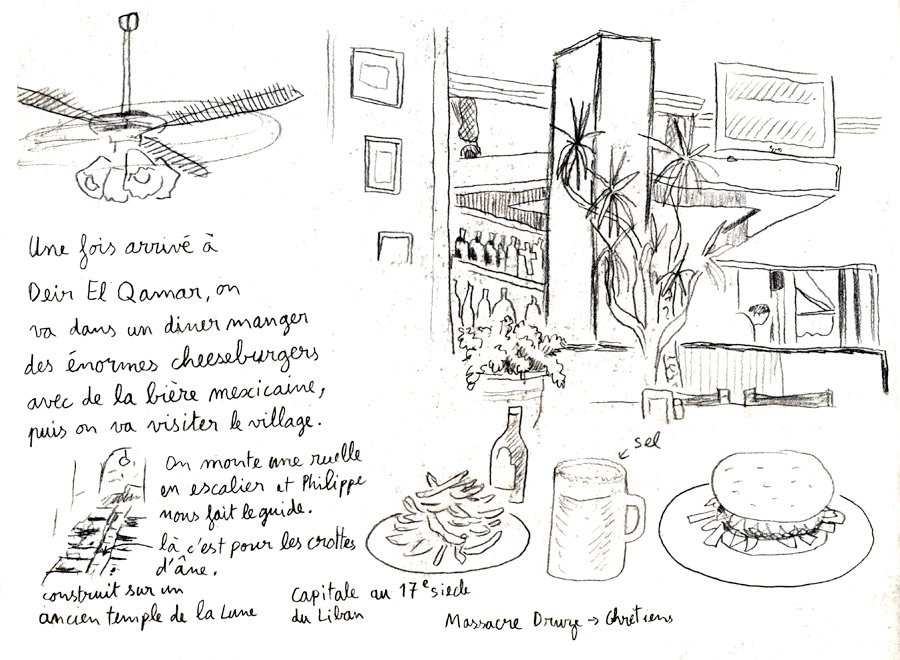 Une fois arrivé à
Deir El Qamar, on
va dans un diner manger
des énormes cheeseburgers
avec de la bière mexicaine,
puis on va visiter le village.
On monte une ruelle
en escalier et Philippe
nous fait le guide.
là c'est pour les crottes
d'âne.
construit sur un
ancien temple de la Lune
sel
Capitale au 17e siecle
du Liban
Massacre Druze → Chrétiens